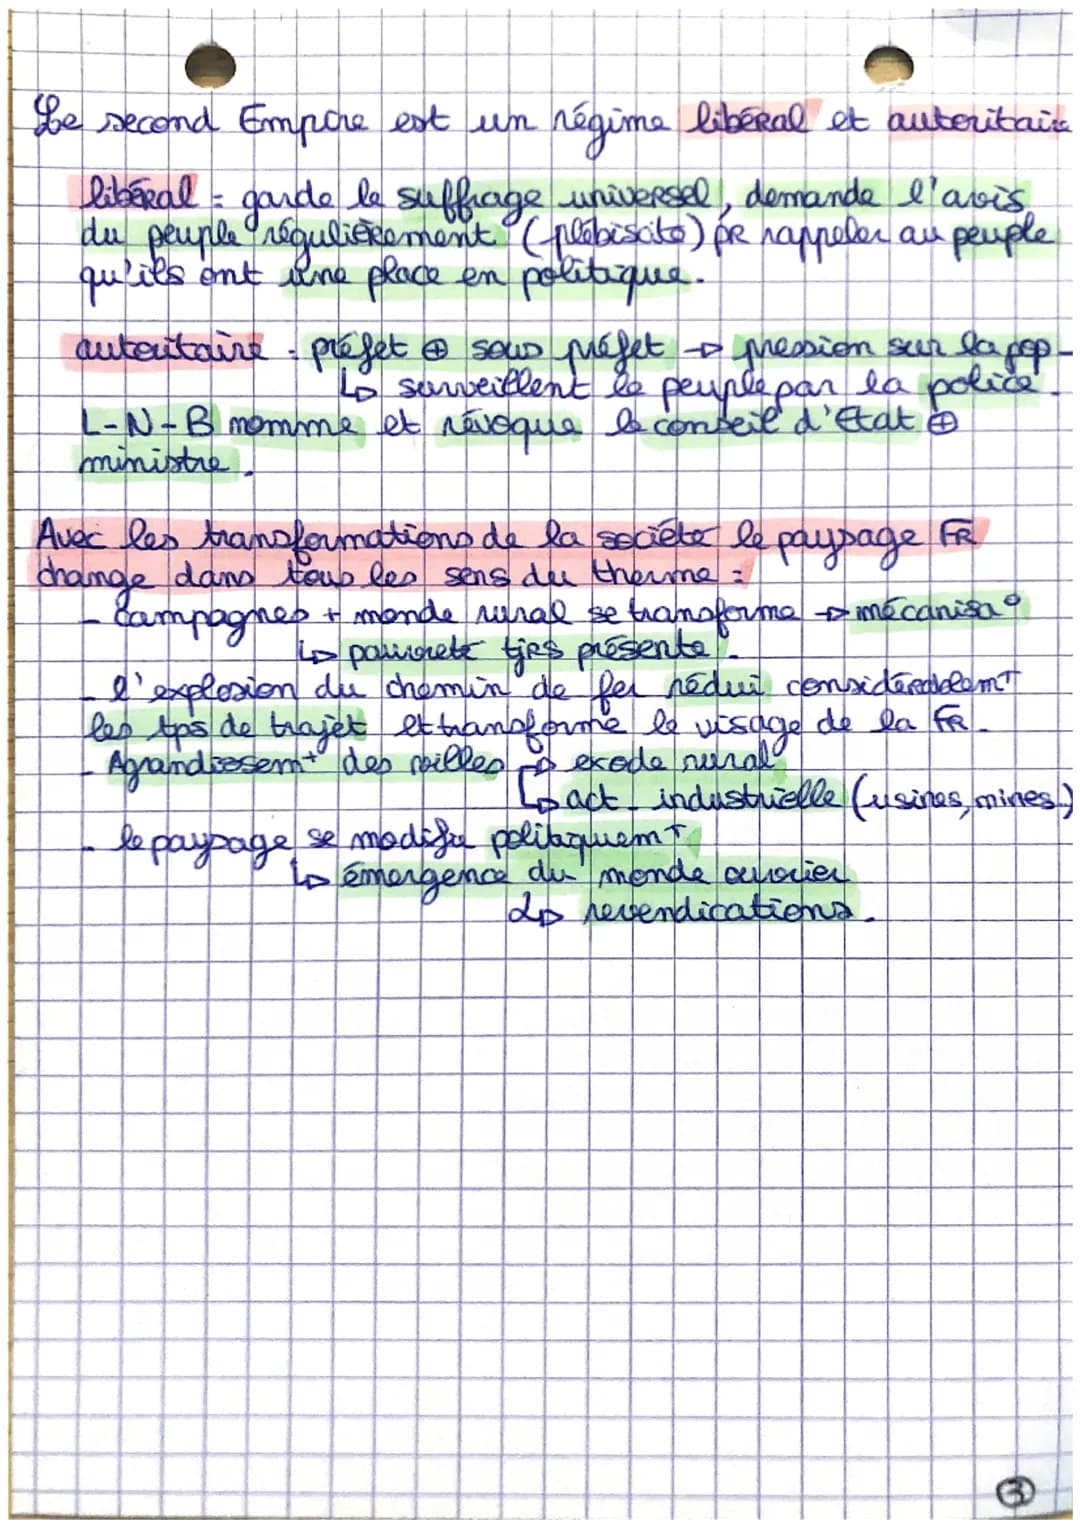 Le second Empire est un régime libéral et autoritaire
libéral = garde le suffrage universel, demande l'avis
du peuple régulièrement (plébiscite) pR rappeler au peuple
qu'ils ont une place en politique.
autoritaire - préfet ⊕ sous préfet → pression sur la pop.
↳ surveillent le peuple par la police.
L-N-B nomme et révoque le conseil d'Etat ⊕
ministre.
Avec les transformations de la société le paysage FR
change dans tous les sens du therme :
- Campagnes + monde rural se transforme → mécanisa°
↳ pauvreté tjrs présente.
- l'explosion du chemin de fer rédui considérablemT
les tps de trajet et transforme le visage de la FR.
- Agrandissem+ des villes → exode rural
↳ act. industrielle (usines, mines.)
- le paysage se modifie politiquemT
↳ émergence du monde ouvrier
↳ revendications.
3